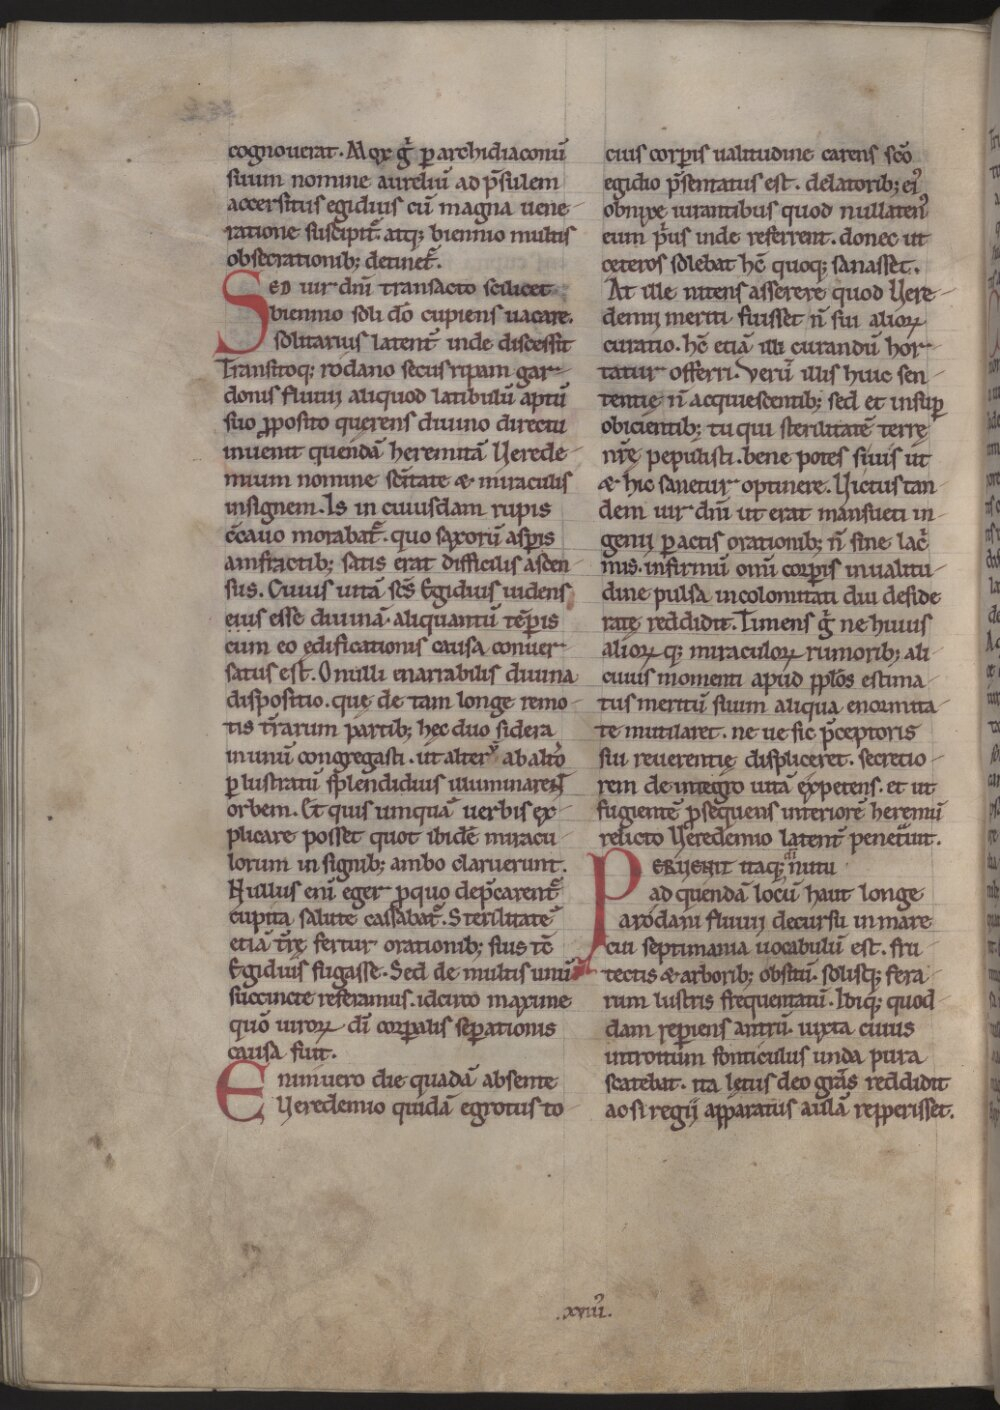 cognouerat. Mox g̊ ꝑ archidiaconū
suum nomine aureliū ad p̄sulem
accersitus egidius cū magna uene-
ratione suscipit᷑. atq; biennio multis
obsecrationib; detinet᷑.
SED uir dn̄i transacto scilicet
biennio soli dō cupiens uacare.
solitarius latent᷑ inde discessit
Transitoq; rodano secus ripam gar-
donis fluuij aliquod latibulū aptū
suo ꝓposito querens diuino directu
inuenit quendā heremitā Uerede-
mium nomine sc̄itate & miraculis
insignem. Is in cuiusdam rupis
c̄cauo morabat᷑. quo saxorū aspis
amfractib; satis erat difficilis ascen-
sus. Cuius uitā sc̄s Egidius uidens
eius esse diuinā. aliquantū tēꝑis
cum eo ędificationis causa conuer-
satus est. O nulli enarrabilis diuina
dispositio. quę de tam longe remo-
tis tr̄arum partib; hęc duo sidera
in unū congregasti. ut alter᷑ ab alto
ꝑlustratū splendidius illuminaret
orbem. Et quis umquā uerbis ex-
plicare posset quot ibidē miracu-
lorum insignib; ambo claruerunt.
Nullus enī eger ꝓ quo dep̄carent᷑
cupita salute cassabat᷑. Sterilitatē
etiā tr̄ę fertur orationib; suis tc̄
Egidius fugasse. Sed de multis unū
succincte referamus. idcirco maxime
quō uirorꝝ dī corꝑalis seꝑationis
causa fuit.
Enimuero die quadā absente
Ueredemio quidā egrotus to-
cius corꝑis ualitudine carens sc̄o
egidio p̄sentatus est. delatorib; ei᷒
obnixe iurantibus quod nullaten᷒
eum p̄us inde referrent. donec ut
ceteros solebat hc̄ quoq; sanasset.
At ille nitens asserere quod Uere-
demij meriti fuisset n̄ sui aliorꝝ
curatio. hc̄ etiā illi curandū hor-
tatur offerri. Verū illis huic sen-
tentię n̄ acquiescentib; sed et insuꝑ
obicientib; tu qui sterilitatē terrę
nr̄ę pepulisti. bene potes si uis ut
& hic sanetur optinere. Uictus tan-
dem uir dn̄i ut erat mansueti in-
genij ꝑactis orationib; n̄ sine lac̄-
mis. infirmū om̄i corꝑis inualitu-
dine pulsa incolomitati diu deside-
ratę reddidit. Timens g̊ ne huius
aliorꝝ q; miraculorꝝ rumorib; ali-
cuius momenti apud ppl̄os estima-
tus meritū suum aliqua enormita-
te mutilaret. ne ue sic p̄ceptoris
sui reuerentię displiceret. secretio-
rem de integro uitā expetens. et ut
fugientē ꝓsequens interiorē heremū
relicto Ueredemio latent᷑ penetͣuit.
PERUENIT itaq; dī nutu
ad quendā locū haut longe
a rodani fluuij decursu in mare
cui septimania uocabulū est. fru-
tectis & arborib; obsitū. solisq; fera-
rum lustris frequentatū. Ibiq; quod-
dam reꝑiens antrū. iuxta cuius
introitum fonticulus unda pura
scatebat. ita lętus deo grās reddidit
ac si regij apparatus aulā repperisset.
.xxiiii.